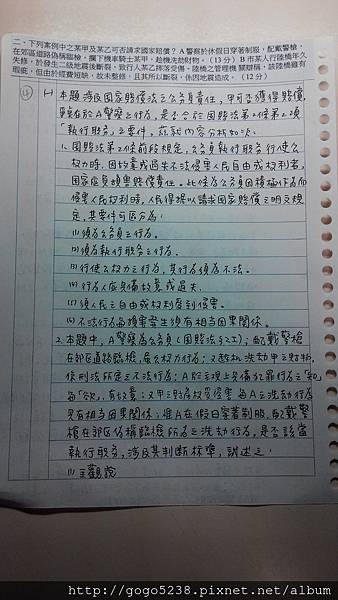 二、下列案例中之某甲及某乙可否請求國家賠償？A警察於休假日穿著制服，配戴警槍，
在郊區道路偽稱臨檢，攔下機車騎士某甲，趁機洗劫財物。(13分) B市某人行陸橋年久
失修，於發生二級地震後斷裂，致行人某乙摔落受傷。陸橋之管理機關辯稱，該陸橋雖有
瑕疵，但由於經費短缺，故未整修，且其所以斷裂，係因地震造成。(12分)
(一) 本題涉及國家賠償法之公務員責任，甲可否獲得賠償，
端在於A警察之行為，是否合於國賠法第2條第2項
「執行職務」之要件，茲就內容分析如次：
1. 國賠法第2條前段規定，公務員執行職務行使公
權力時，因故意或過失不法侵害人民自由或權利者，
國家應負損害賠償責任。此係為公務員因積極行為而
侵害人民權利時，人民得據以請求國家賠償之明文規
定，其要件可區分為：
(1) 須為公務員之行為。
(2) 須為執行職務之行為。
(3) 行使公權力之行為，其行為須為不法。
(4) 行為人應具備故意或過失。
(5) 須人民之自由或權利受到侵害。
(6) 不法行為與損害發生須有相當因果關係。
2. 本題中，A警察為公務員(國賠法§2I)；配戴警槍
在郊區道路臨檢，屬公權力行為；又趁機洗劫甲之財物，
係刑法所定之不法行為；A於主觀上具備犯罪行為之「知」
與「欲」，有故意；又甲之財產權受侵害與A之洗劫行為
具有相當因果關係；惟A在假日穿著制服，配戴警
槍在郊區偽稱臨檢所為之洗劫行為，是否該當
執行職務，涉及其判斷標準，試述之：
(1) 主觀說
http://gogo5238.pixnet.net/album